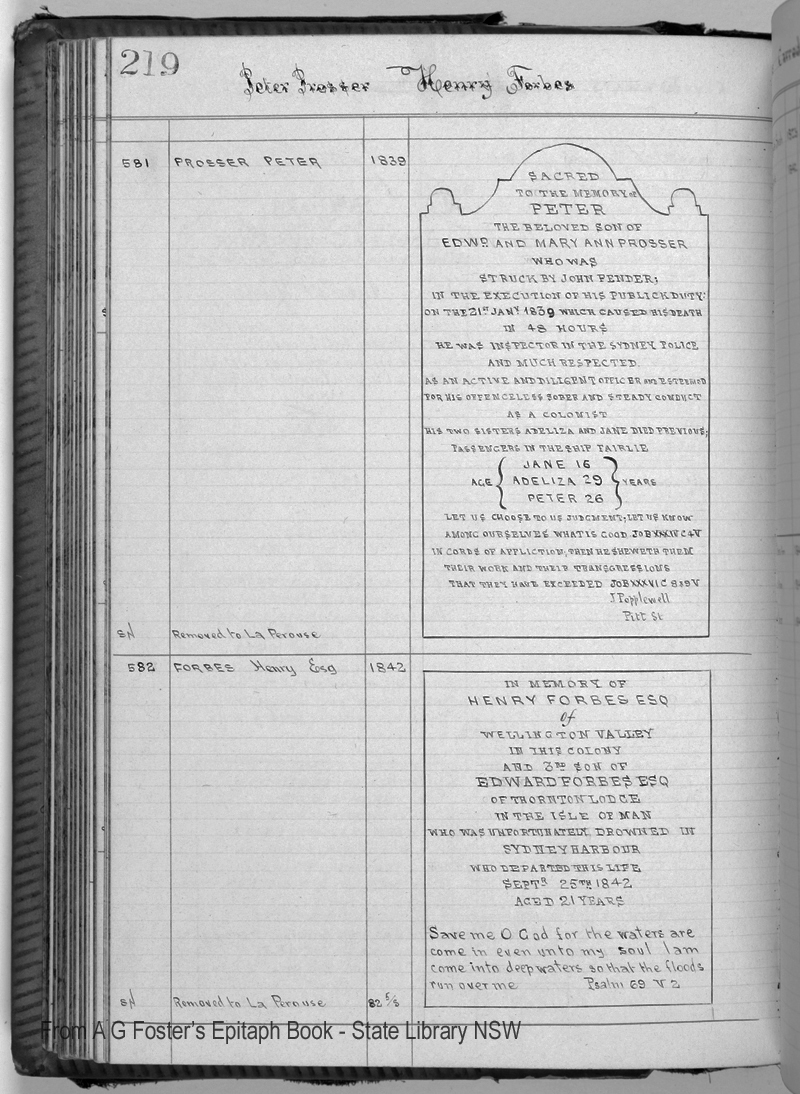 219
Peter Prosser Henry Forbes
581 PROSSER PETER 1839
SACRED
TO THE MEMORY OF
PETER
THE BELOVED SON OF
EDWD. AND MARY ANN PROSSER
WHO WAS
STRUCK BY JOHN PENDER;
IN THE EXECUTION OF HIS PUBLICK DUTY:
ON THE 21ST JANY 1839 WHICH CAUSED HIS DEATH
IN 48 HOURS
HE WAS INSPECTOR IN THE SYDNEY POLICE
AND MUCH RESPECTED.
AS AN ACTIVE AND DILIGENT OFFICER AND ESTEEMED
FOR HIS OFFENCELESS SOBER AND STEADY CONDUCT
AS A COLONIST
HIS TWO SISTERS ADELIZA AND JANE DIED PREVIOUS;
PASSENGERS IN THE SHIP FAIRLIE
JANE 16
AGE ADELIZA 29 YEARS
PETER 26
LET US CHOOSE TO US JUDGMENT; LET US KNOW
AMONG OURSELVES WHAT IS GOOD. JOB XXXIV C 4 V
IN CORDS OF AFFLICTION, THEN HE SHEWETH THEM
THEIR WORK AND THEIR TRANSGRESSIONS
THAT THEY HAVE EXCEEDED JOB XXXVI C 8 & 9 V
J Popplewell
Pitt St
SN Removed to La Perouse
582 FORBES Henry Esq 1842
IN MEMORY OF
HENRY FORBES ESQ
of
WELLINGTON VALLEY
IN THIS COLONY
AND 3RD SON OF
EDWARD FORBES ESQ
OF THORNTON LODGE
IN THE ISLE OF MAN
WHO WAS UNFORTUNATELY DROWNED IN
SYDNEY HARBOUR
WHO DEPARTED THIS LIFE
SEPTR 25TH 1842
AGED 21 YEARS
Save me O God for the waters are
come in even unto my soul I am
come into deep waters so that the floods
run over me Psalm 69 V 2
SN Removed to La Perouse 82
From A G Foster's Epitaph Book - State Library NSW